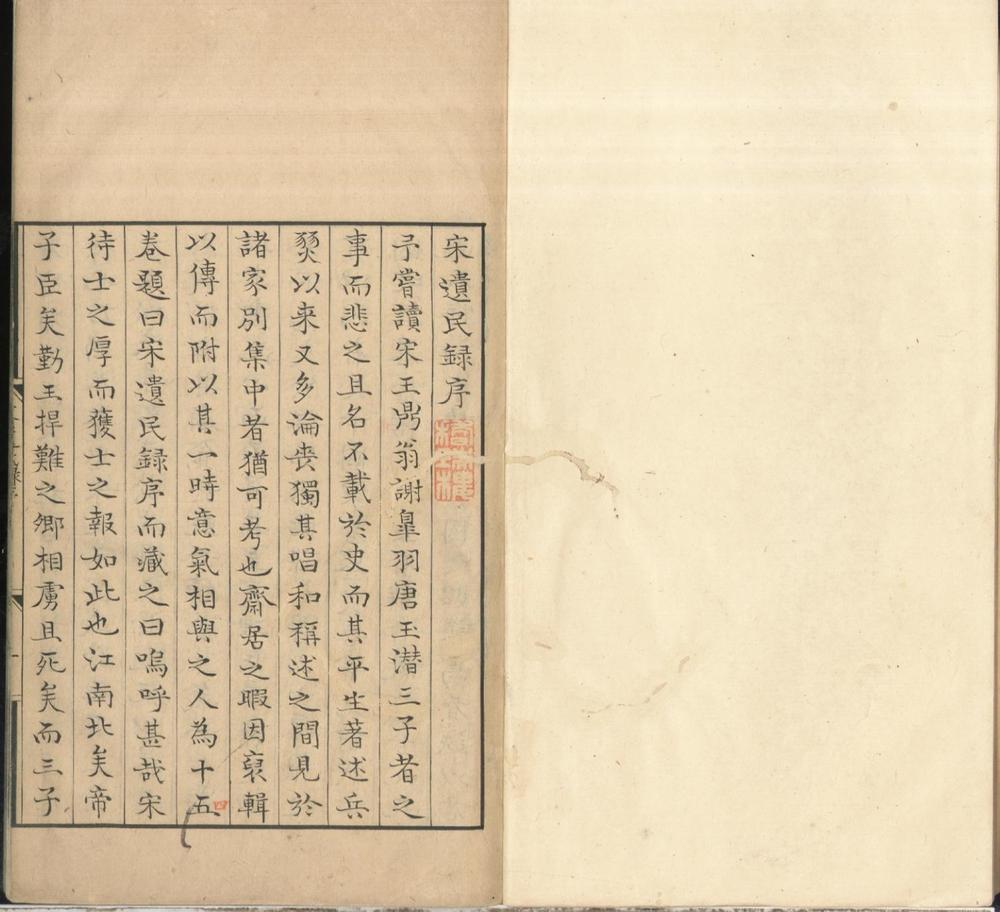 宋遺民録序
予嘗讀宋王鼎翁謝臯羽唐玉潛三子者之
事而悲之且名不載於史而其平生著述兵
燹以来又多淪喪獨其唱和稱述之間見於
諸家別集中者猶可考也齋居之暇因裒輯
以傳而附以其一時意氣相與之人為十五
四
卷題曰宋遺民録序而藏之曰嗚呼甚哉宋
待士之厚而獲士之報如此也江南北矣帝
子臣矣勤王捍難之卿相虜且死矣而三子